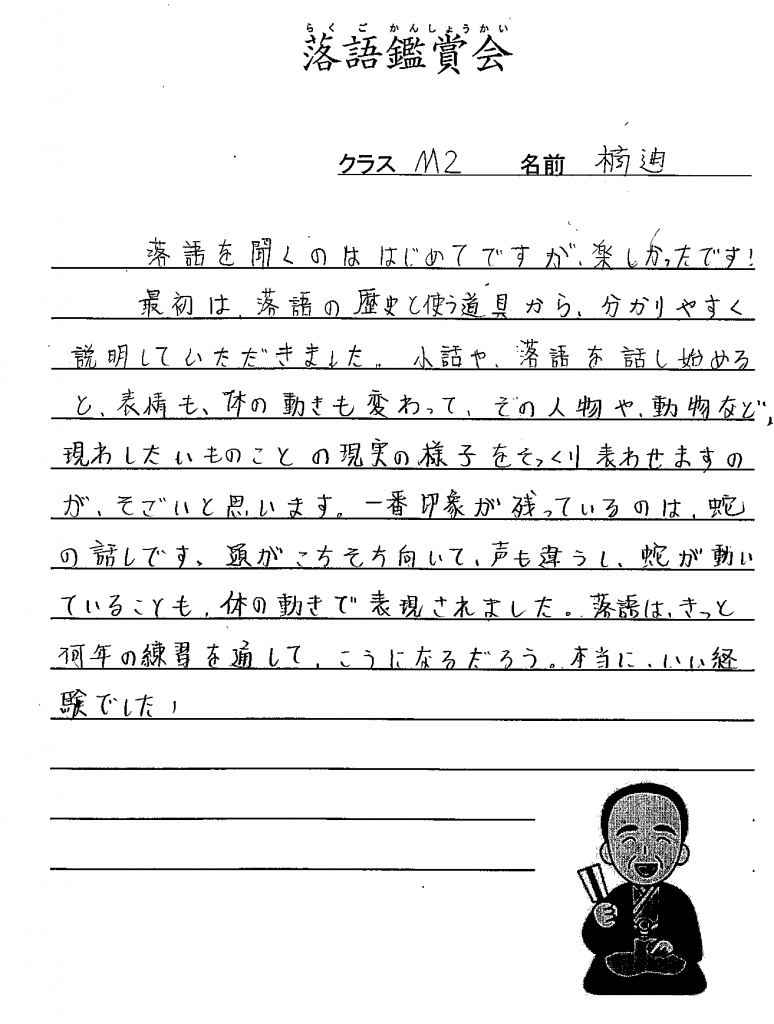 らくごかんしょうかい
落語鑑賞会
クラス M2 名前 楠迪
落語を聞くのは はじめてですが、楽しかったです!
最初は、落語の歴史と使う道具から、分かりやすく
説明していただきました。小話や、落語を話し始める
と、表情も、体の動きも変わって、その人物や、動物など、
現わしたいものことの現実の様子をそっくり表わせますの
が、そごいと思います。一番印象が残っているのは、蛇
の話しです、頭がこちそち向いて、声も違うし、蛇が動い
ていることも、体の動きで表現されました。落語は、きっと
何年の練習を通して、こうになるだろう。本当に、いい経
験でした!